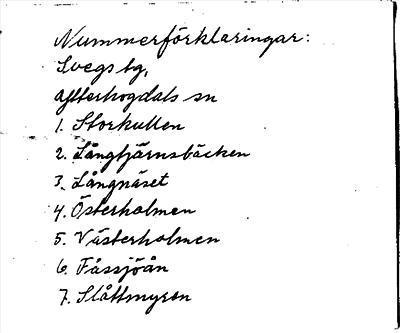 Nummerförklaringar:
Svegs tg,
Ytterhogdals sn
1. Storkullen
2. Långtjärnsbäcken
3. Långnäset
4. Österholmen
5. Västerholmen
6. Fåssjöån
7. Slåttmyren